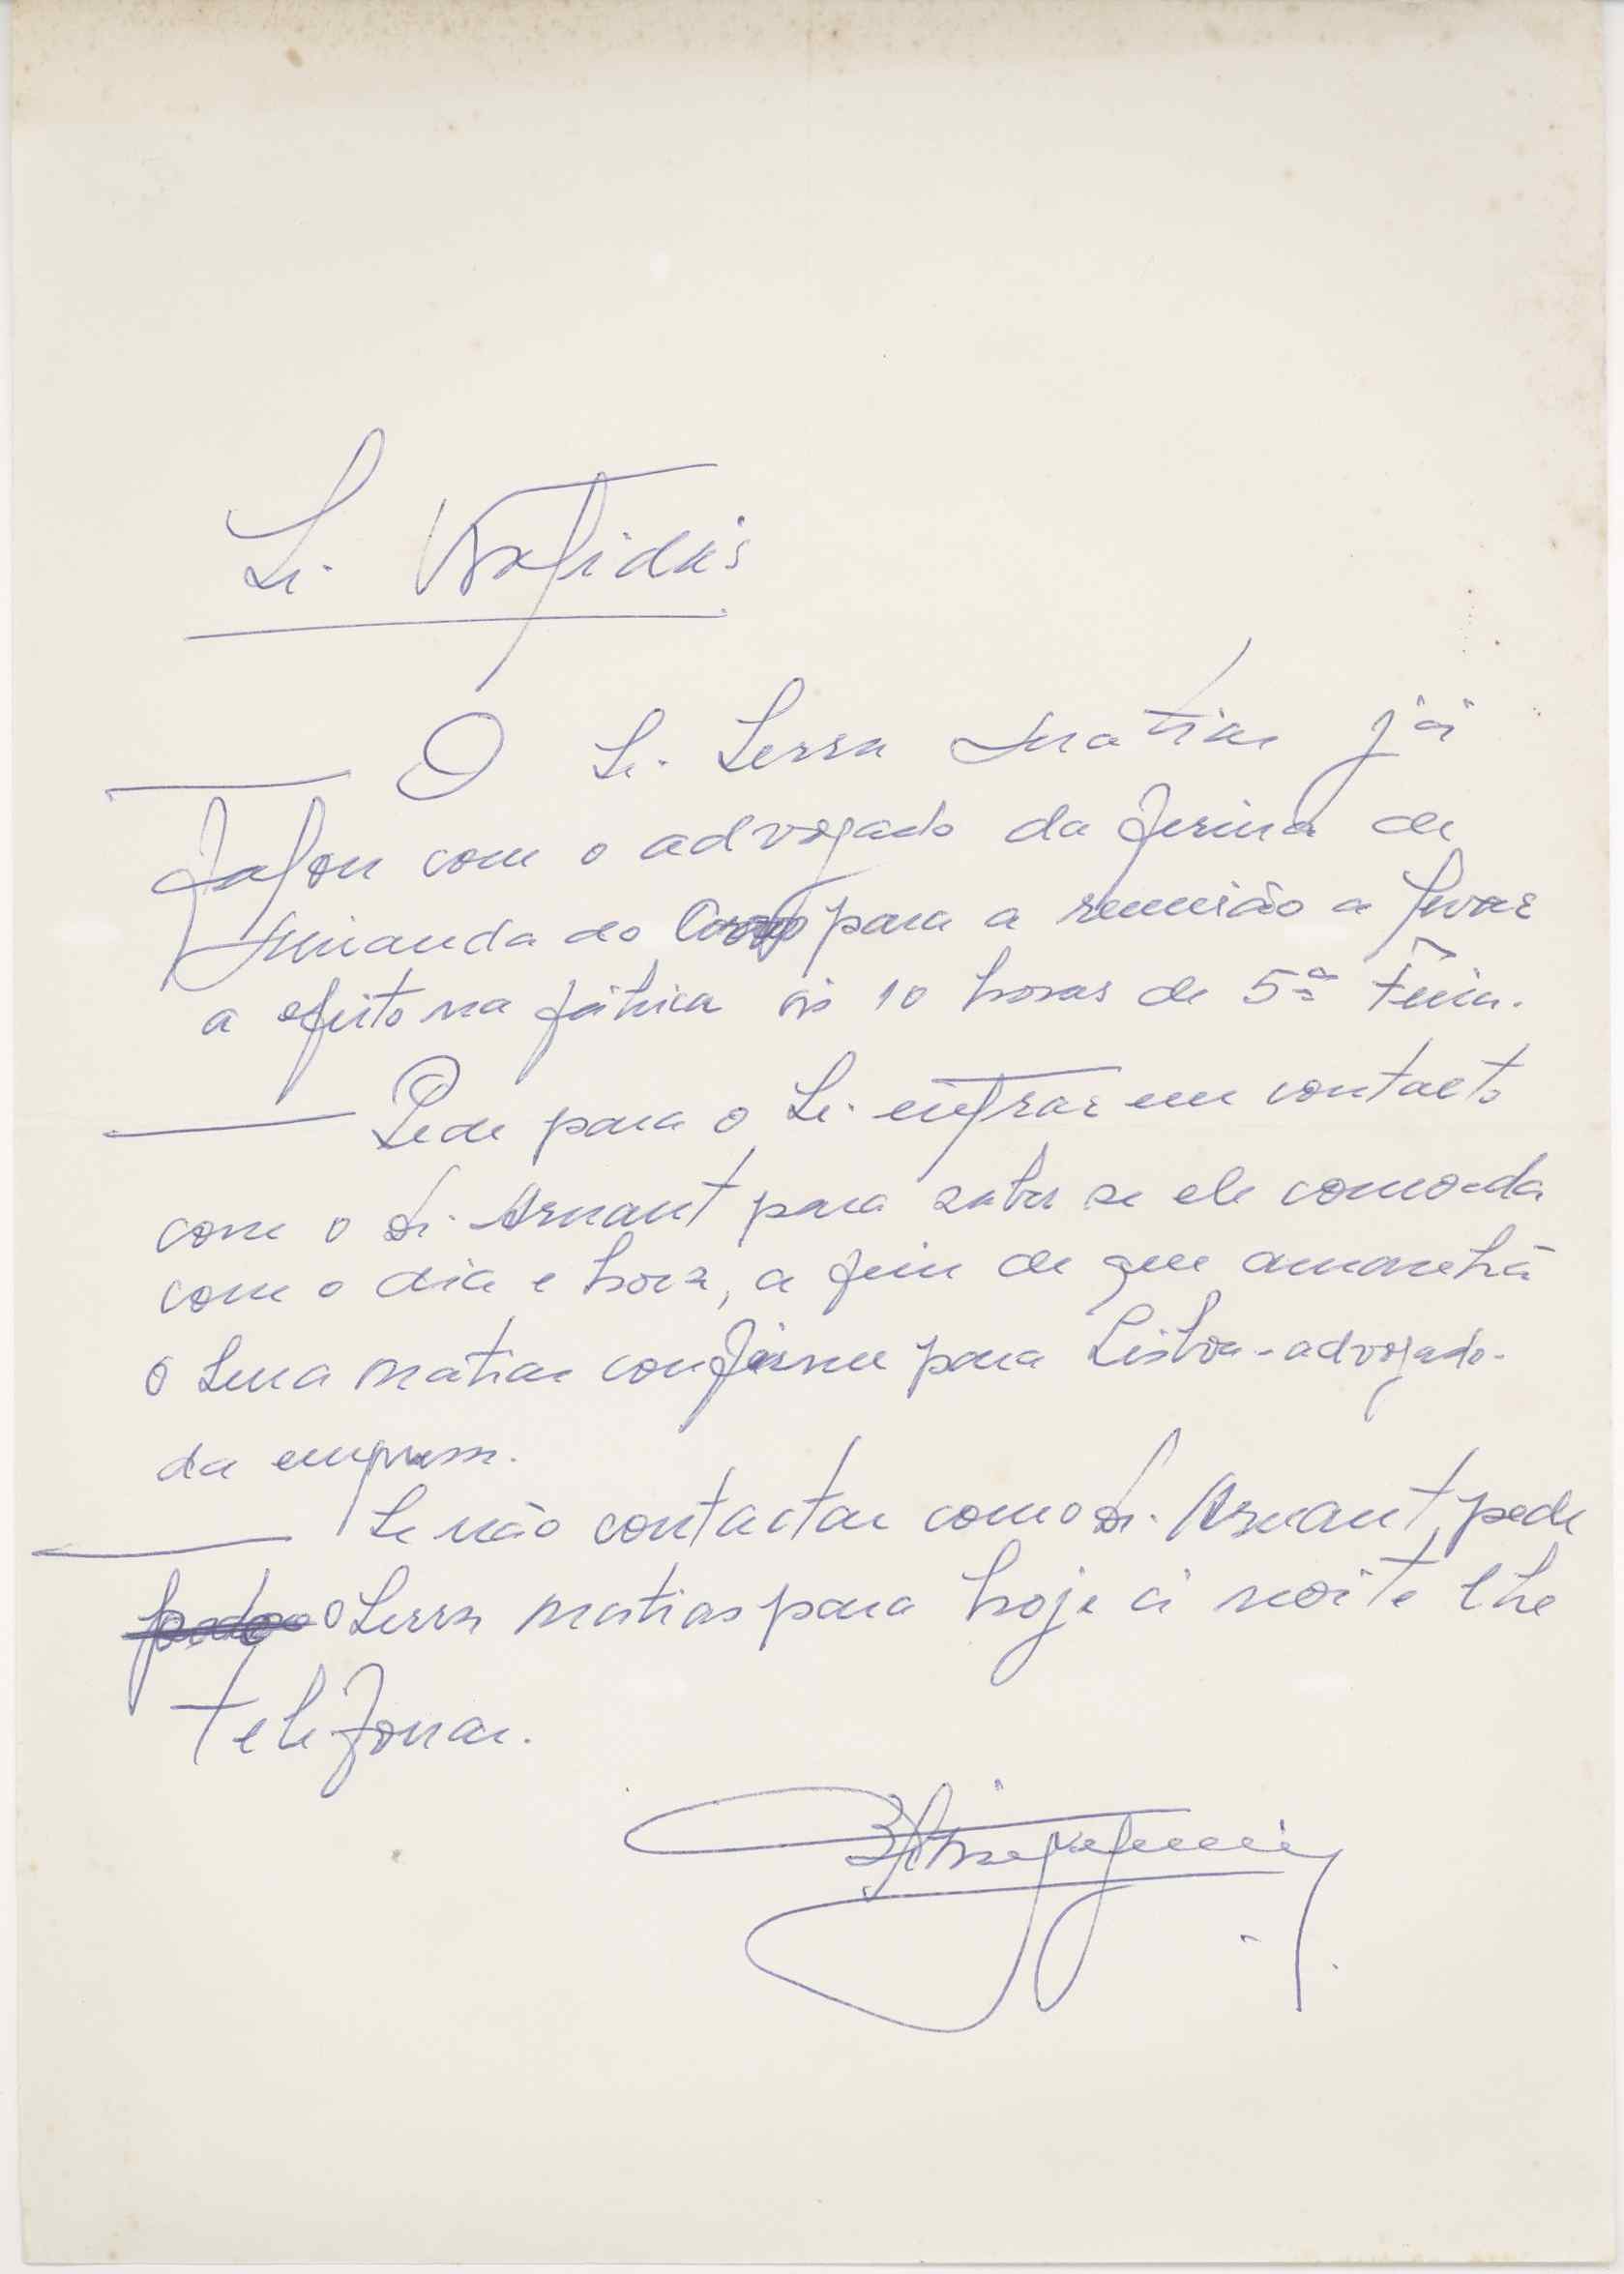 Sr.
O Sr. Serra Matias já
falou com o advogado da firma de
Miranda do Corvo para a reunião a levar
a efeito na fábrica às 10 horas de 5ª Feira.
Pede para o Sr. entrar em contacto
com o dr. Arnaut para saber se ele concorda
com o dia e hora, a fim de que amanhã
o Serra Matias confirme para Lisboa - advogado -
da empresa.
Se não contactar com o dr. Arnaut, pede
o Serra Matias para hoje à noite lhe
telefonar.